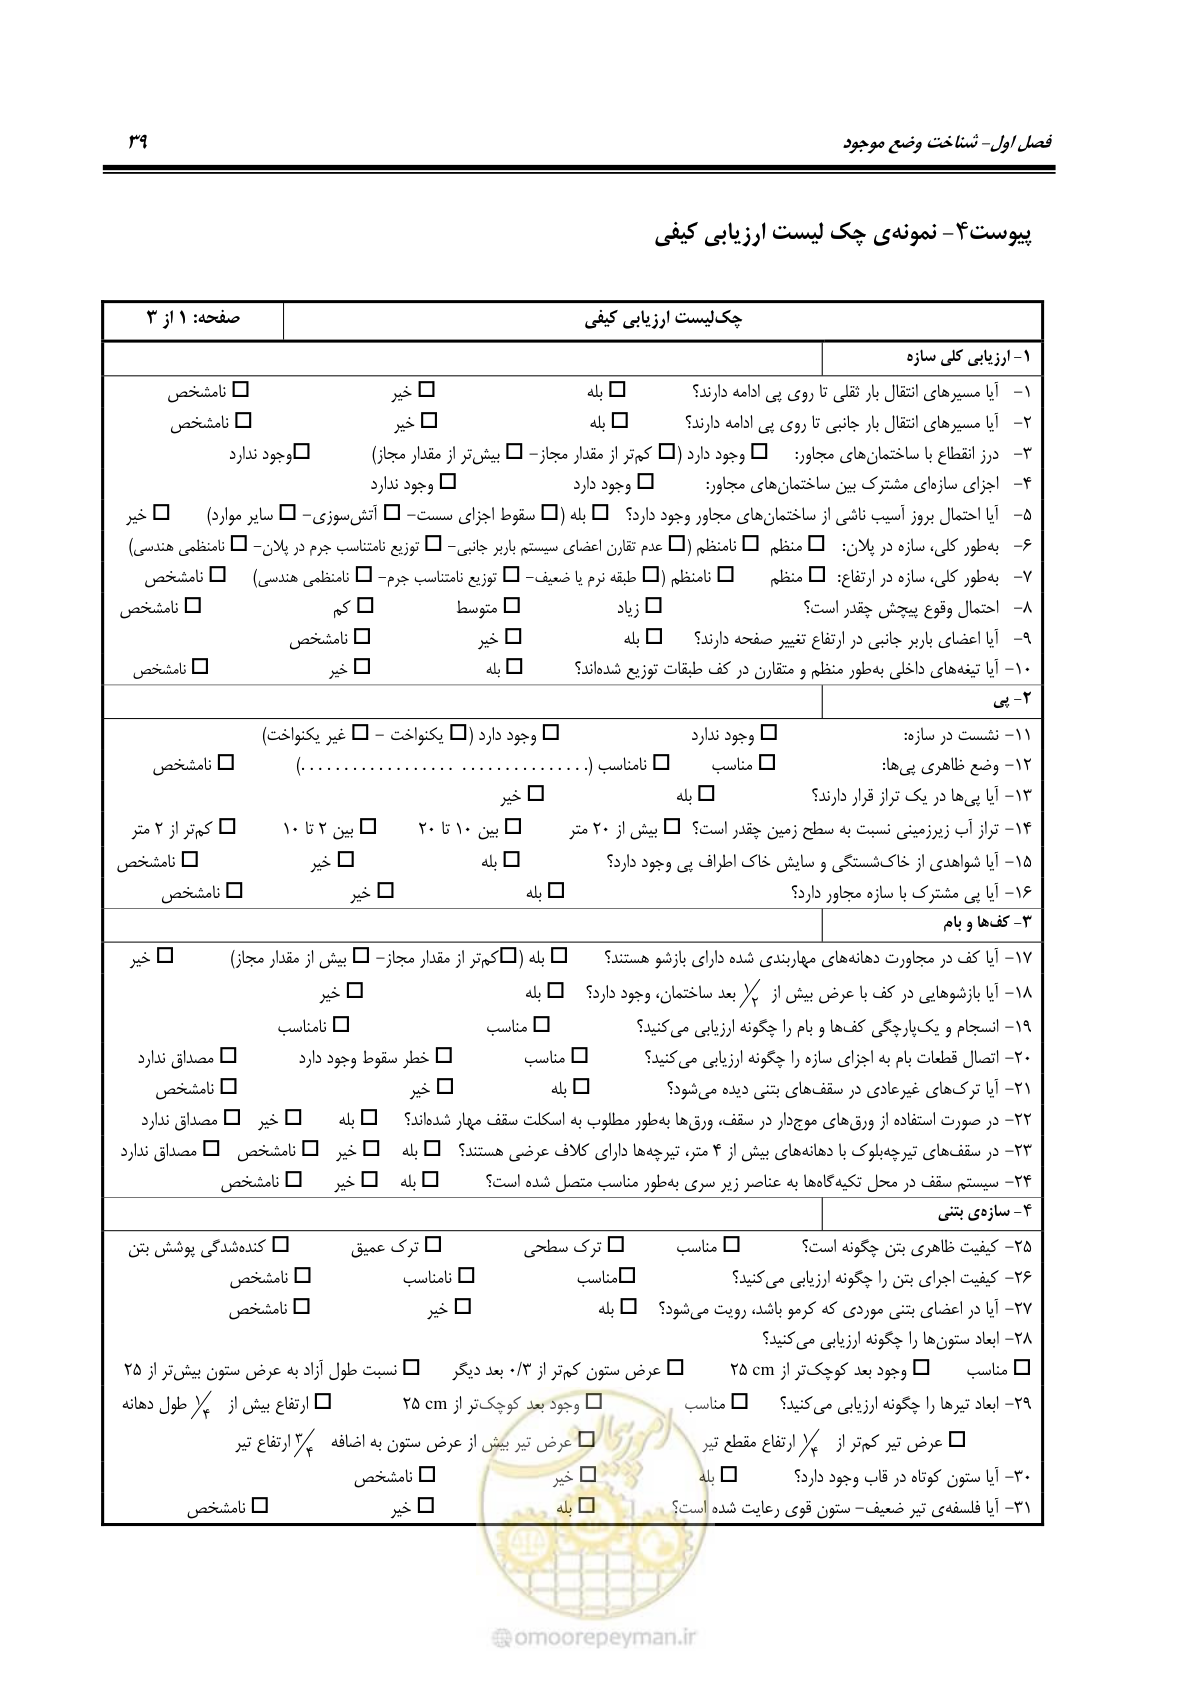 فصل اول- شناخت وضع موجود ۳۹
پیوست۴- نمونه‌ی چک لیست ارزیابی کیفی
چک‌لیست ارزیابی کیفی صفحه: ۱ از ۳
۱- ارزیابی کلی سازه
۱- آیا مسیرهای انتقال بار ثقلی تا روی پی ادامه دارند؟ □ بله □ خیر □ نامشخص
۲- آیا مسیرهای انتقال بار جانبی تا روی پی ادامه دارند؟ □ بله □ خیر □ نامشخص
۳- درز انقطاع با ساختمان‌های مجاور: □ وجود دارد (□ کم‌تر از مقدار مجاز- □ بیش‌تر از مقدار مجاز) □وجود ندارد
۴- اجزای سازه‌ای مشترک بین ساختمان‌های مجاور: □ وجود دارد □ وجود ندارد
۵- آیا احتمال بروز آسیب ناشی از ساختمان‌های مجاور وجود دارد؟ □ بله (□ سقوط اجزای سست- □ آتش‌سوزی- □ سایر موارد) □ خیر
۶- به‌طور کلی، سازه در پلان: □ منظم □ نامنظم (□ عدم تقارن اعضای سیستم باربر جانبی- □ توزیع نامتناسب جرم در پلان- □ نامنظمی هندسی)
۷- به‌طور کلی، سازه در ارتفاع: □ منظم □ نامنظم (□ طبقه نرم یا ضعیف- □ توزیع نامتناسب جرم- □ نامنظمی هندسی) □ نامشخص
۸- احتمال وقوع پیچش چقدر است؟ □ زیاد □ متوسط □ کم □ نامشخص
۹- آیا اعضای باربر جانبی در ارتفاع تغییر صفحه دارند؟ □ بله □ خیر □ نامشخص
۱۰- آیا تیغه‌های داخلی به‌طور منظم و متقارن در کف طبقات توزیع شده‌اند؟ □ بله □ خیر □ نامشخص
۲- پی
۱۱- نشست در سازه: □ وجود ندارد □ وجود دارد (□ یکنواخت - □ غیر یکنواخت)
۱۲- وضع ظاهری پی‌ها: □ مناسب □ نامناسب (................................) □ نامشخص
۱۳- آیا پی‌ها در یک تراز قرار دارند؟ □ بله □ خیر
۱۴- تراز آب زیرزمینی نسبت به سطح زمین چقدر است؟ □ بیش از ۲۰ متر □ بین ۱۰ تا ۲۰ □ بین ۲ تا ۱۰ □ کم‌تر از ۲ متر
۱۵- آیا شواهدی از خاک‌شستگی و سایش خاک اطراف پی وجود دارد؟ □ بله □ خیر □ نامشخص
۱۶- آیا پی مشترک با سازه مجاور دارد؟ □ بله □ خیر □ نامشخص
۳- کف‌ها و بام
۱۷- آیا کف در مجاورت دهانه‌های مهاربندی شده دارای بازشو هستند؟ □ بله (□کم‌تر از مقدار مجاز- □ بیش از مقدار مجاز) □ خیر
۱۸- آیا بازشوهایی در کف با عرض بیش از ۱/۲ بعد ساختمان، وجود دارد؟ □ بله □ خیر
۱۹- انسجام و یک‌پارچگی کف‌ها و بام را چگونه ارزیابی می‌کنید؟ □ مناسب □ نامناسب
۲۰- اتصال قطعات بام به اجزای سازه را چگونه ارزیابی می‌کنید؟ □ مناسب □ خطر سقوط وجود دارد □ مصداق ندارد
۲۱- آیا ترک‌های غیرعادی در سقف‌های بتنی دیده می‌شود؟ □ بله □ خیر □ نامشخص
۲۲- در صورت استفاده از ورق‌های موج‌دار در سقف، ورق‌ها به‌طور مطلوب به اسکلت سقف مهار شده‌اند؟ □ بله □ خیر □ مصداق ندارد
۲۳- در سقف‌های تیرچه‌بلوک با دهانه‌های بیش از ۴ متر، تیرچه‌ها دارای کلاف عرضی هستند؟ □ بله □ خیر □ نامشخص □ مصداق ندارد
۲۴- سیستم سقف در محل تکیه‌گاه‌ها به عناصر زیر سری به‌طور مناسب متصل شده است؟ □ بله □ خیر □ نامشخص
۴- سازه‌ی بتنی
۲۵- کیفیت ظاهری بتن چگونه است؟ □ مناسب □ ترک سطحی □ ترک عمیق □ کنده‌شدگی پوشش بتن
۲۶- کیفیت اجرای بتن را چگونه ارزیابی می‌کنید؟ □مناسب □ نامناسب □ نامشخص
۲۷- آیا در اعضای بتنی موردی که کرمو باشد، رویت می‌شود؟ □ بله □ خیر □ نامشخص
۲۸- ابعاد ستون‌ها را چگونه ارزیابی می‌کنید؟
□ مناسب □ وجود بعد کوچک‌تر از ۲۵ cm □ عرض ستون کم‌تر از ۰/۳ بعد دیگر □ نسبت طول آزاد به عرض ستون بیش‌تر از ۲۵
۲۹- ابعاد تیرها را چگونه ارزیابی می‌کنید؟ □ مناسب □ وجود بعد کوچک‌تر از ۲۵ cm □ ارتفاع بیش از ۱/۴ طول دهانه
□ عرض تیر کم‌تر از ۱/۴ ارتفاع مقطع تیر □ عرض تیر بیش از عرض ستون به اضافه ۳/۴ ارتفاع تیر
۳۰- آیا ستون کوتاه در قاب وجود دارد؟ □ بله □ خیر □ نامشخص
۳۱- آیا فلسفه‌ی تیر ضعیف- ستون قوی رعایت شده است؟ □ بله □ خیر □ نامشخص
امور پیمان
@omoorepeyman.ir